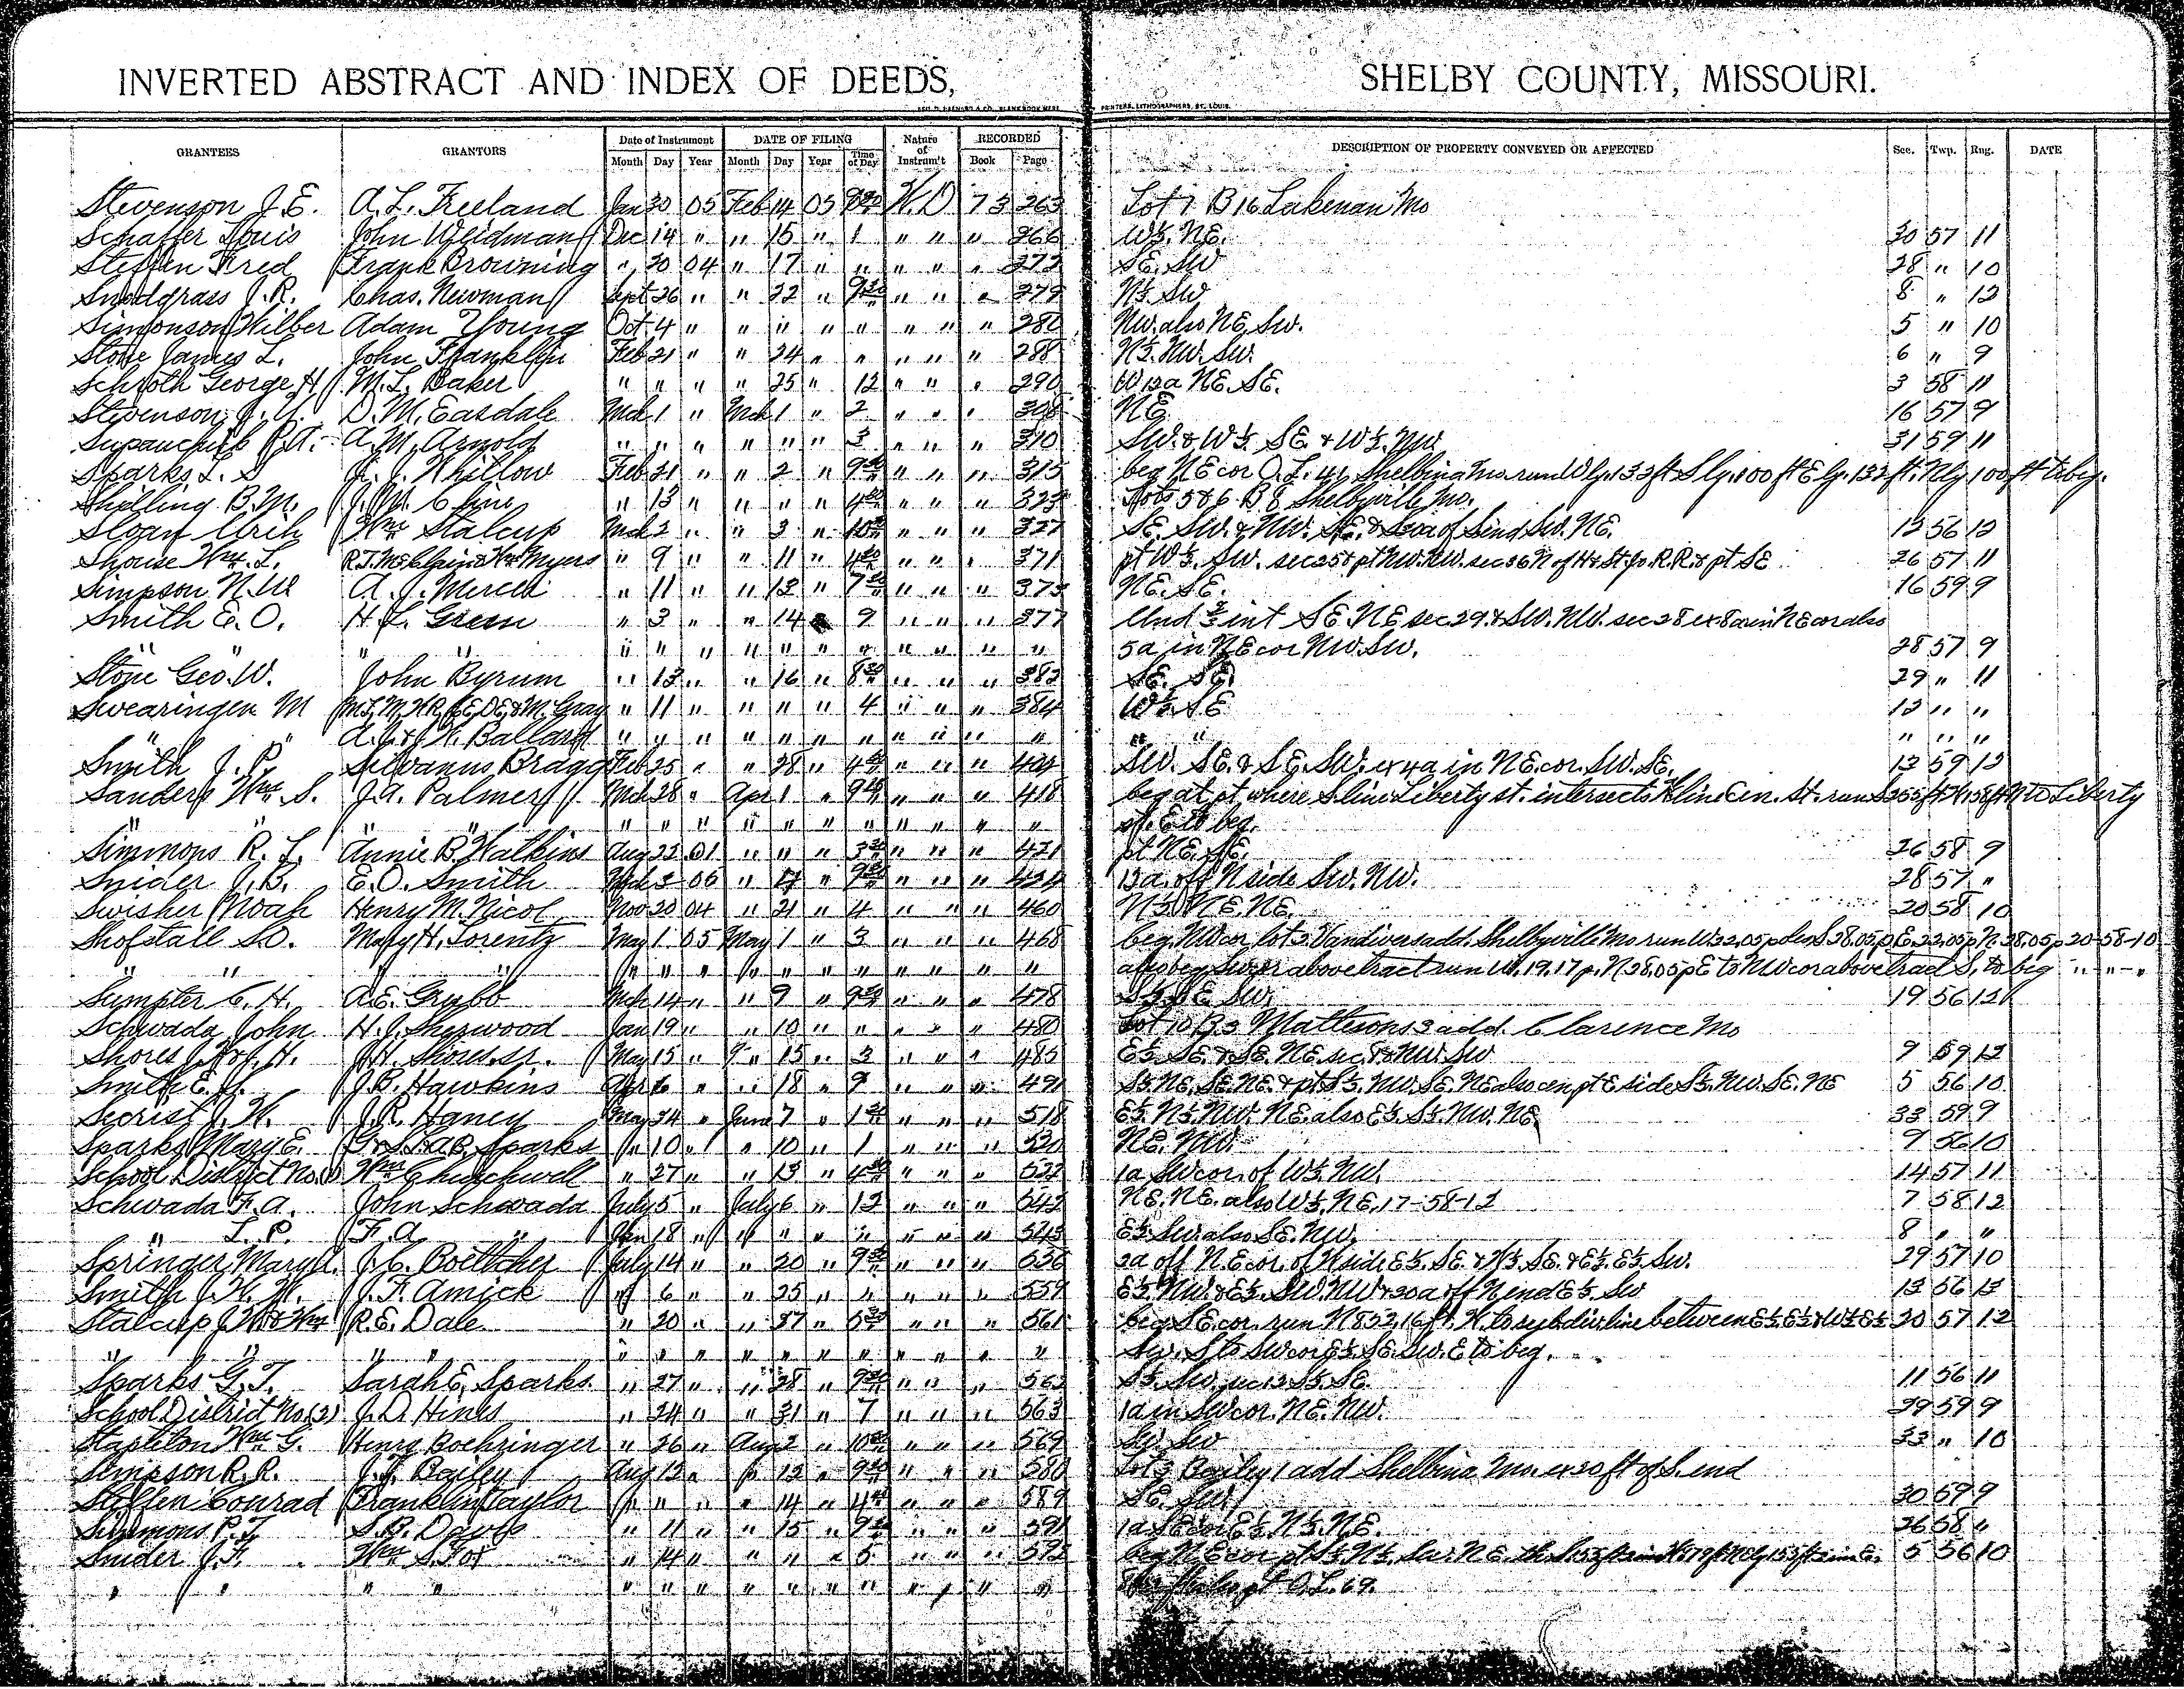 INVERTED ABSTRACT AND INDEX OF DEEDS, SHELBY COUNTY, MISSOURI.
PRINTERS, LITHOGRAPHERS, ST. LOUIS.
GRANTEES GRANTORS Date of Instrument DATE OF FILING Nature of Instrum't RECORDED DESCRIPTION OF PROPERTY CONVEYED OR AFFECTED Sec. Twp. Rng. DATE
Month Day Year Month Day Year Time of Day Book Page
Stevenson J.E. A.L. Freeland Jan 30 05 Feb 14 05 W.D 73 263 Lot 7 B 16 Lakenan Mo
Schaffer Louis John Weidman Dec 14 " " 15 " 1 " " " 266 W½. NE. 30 57 11
Steffen Fred Frank Browning " 20 04 " 17 " " " " " 272 SE. SW 28 " 10
Snodgrass J.R. Chas. Newman Sept 26 " " 22 " 9 " " " 279 N½. SW 8 " 12
Simonson Wilber Adam Young Oct 4 " " " " " " " " 280 NW. also NE. SW. 5 " 10
Stone James L. John Franklin Feb 21 " " 24 " " " " " 288 N½. NW. SW. 6 " 9
Schroth George H. M.L. Baker " " " " 25 " 12 " " " 290 W 12a NE. SE. 3 58 11
Stevenson J. D.M. Easdale Mch 1 " Mch 1 " 2 " " " 308 NE 16 57 9
A.M. Arnold " " " " " " 3 " " " 310 SW. & W½ SE. & W½. NW 31 59 11
Sparks L. S Whitlow Feb 21 " " 2 " " " " 315 beg NE cor O.L. 41 Shelbina Mo. run W lg. 132 ft S lg. 100 ft E lg. 132 ft. N lg 100 ft to beg.
B.M. J.M. Cline " 13 " " " " " " " 323 Lots 5 & 6 B 8 Shelbyville Mo.
Sloan Urich Wm Stalcup Mch 2 " " 3 " " " " 327 SE. SW. & NW. SE. & of S end SW. NE. 12 56 12
Shouse Wm. L. R.T. & Wm Myers " 9 " " 11 " " " " 371 pt W½. SW. sec 25 & pt NW. NW. sec 36 N of H & St Jo. R.R. & pt SE 26 57 11
Simpson N. A.J. " 11 " " 13 " 7 " " " 373 NE. SE. 16 59 9
Smith E.O. H.L. Green " 3 " " 14 9 " " " 377 Und ½ int SE. NE sec 29. & SW. NW. sec 28 ex 8a in NE cor also
" " " " " " " " " " " " " " " 5a in NE cor NW. SW. 28 57 9
Stone Geo. W. John Byrum " 13 " " 16 " 8 " " " 382 SE. SE 29 " 11
Swearingen M M. Gray " 11 " " " " 4 " " " 384 W½ SE 13 " "
" " Ballard " " " " " " " " " " " " " " " "
Smith J. P. Silvanus Bragg Feb 25 " " 28 " 4 " " " 404 SW. SE. & SE. SW. ex 4a in NE. cor. SW. SE. 13 59 12
Sanders Wm. S. J.A. Palmer Mch 28 " Apr 1 " 9 " " " 418 beg at pt where S line Liberty st. intersects line Cen. St. run Liberty
" " " " " " " " " " " " " st. E to beg.
Simmons R. L. Annie B. Watkins Aug 22 01 " " " 3 " " " 421 pt NE. SE. 26 58 9
Snider J.B. E.O. Smith Mch 3 06 " " 9 " " " 13a. off N side SW. NW. 28 57 "
Swisher Noah Henry M. Nicol Nov 20 04 " 21 " 4 " " " 460 N½ NE. NE. 20 58 10
Shofstall S.D. Mary H. Lorentz May 1 05 May 1 " 3 " " " 468 beg. NW cor lot 3 Vandivers add. Shelbyville Mo run 20-58-10
" " " " " " " " " " " " also beg SW cor above tract run W. 19.17 p. N 28.05 p E to NW cor above tract S. to beg " " "
Sumpter C. H. A.E. Grubb Mch 14 " " 9 " 9 " " " 478 S½ SE SW. 19 56 12
Schwada John H.J. Sherwood Jan 19 " " 10 " " " " " 480 Lot 10 B 3 Mattesons 3 add. Clarence Mo
Shores H. J.H. Shores sr. May 15 " " 15 " 3 " " " 485 E½. SE. & SE. NE sec 8 & NW. SW 9 59 12
Smith E. J.B. Hawkins Apr 6 " " 18 " 9 " " " 491 S½. NE. SE. NE & pt S½. NW. SE. NE also cen pt E side S½. NW. SE. NE 5 56 10
Secrist J. H. J.R. Haney May 24 " June 7 " 1 " " " 518 E½. N½. NW. NE. also E½. S½. NW. NE. 33 59 9
Sparks Mary E. Sparks " 10 " " 10 " 1 " " " 520 NE. NW. 9 56 10
School District No. Wm Churchwell " 27 " " 13 " " " " 522 1a SW cor. of W½. NW. 14 57 11
Schwada F.A. John Schwada July 5 " July 6 " 12 " " " 542 NE. NE. also W½. NE. 17-58-12 7 58 12
" L.P. F.A. " Jan 18 " " " " " " " " 543 E½. SW. also SE. NW. 8 " "
Springer Mary A. J.C. Boettcher July 14 " " 20 " 9 " " " 556 2a off NE cor. of N side E½. SE. & W½. SE. & E½. E½. SW. 29 57 10
Smith J.H.W. J.F. Amick " 6 " " 25 " " " " " 559 E½. NW. & E½. SW. NW & 20a off N end E½. SW 13 56 13
Stalcup J.W. & Wm R.E. Dale " 20 " " 27 " " " " 561 beg SE cor. run N 852.16 ft. W. to sub div line between E½. E½ & W½ E½ 20 57 12
" " " " " " " " " " " " " " SW. S to SW cor E½. SE. SW. E to beg.
Sparks G.T. Sarah E. Sparks " 27 " " 28 " 9 " " " 562 S½. SW. sec 12 S½. SE. 11 56 11
School District No. (2) J.D. Hines " 24 " " 31 " 7 " " " 563 1a in SW cor. NE. NW. 29 59 9
Stapleton Wm G. Henry Boehringer " 26 " Aug 2 " 10 " " " 569 SW. SW 33 " 10
Simpson R.R. J.J. Bailey Aug 12 " " 12 " 9 " " " 580 Lot 3 Bailey 1 add Shelbina Mo. ex 20 ft off S. end
Steffen Conrad Franklin Taylor " " " " 14 " 4 " " " 589 SE. SW. 30 59 9
Simmons R.L. S.B. Davis " 11 " " 15 " 9 " " " 591 1a SE cor E½. N½. NE. 26 58 "
Snider J.F. Wm S. Fox " 14 " " " " 5 " " " 592 beg NE cor pt S½. N½. SW. NE. 5 56 10
" " " " " " " " " " " " " " pt O.L. 69.